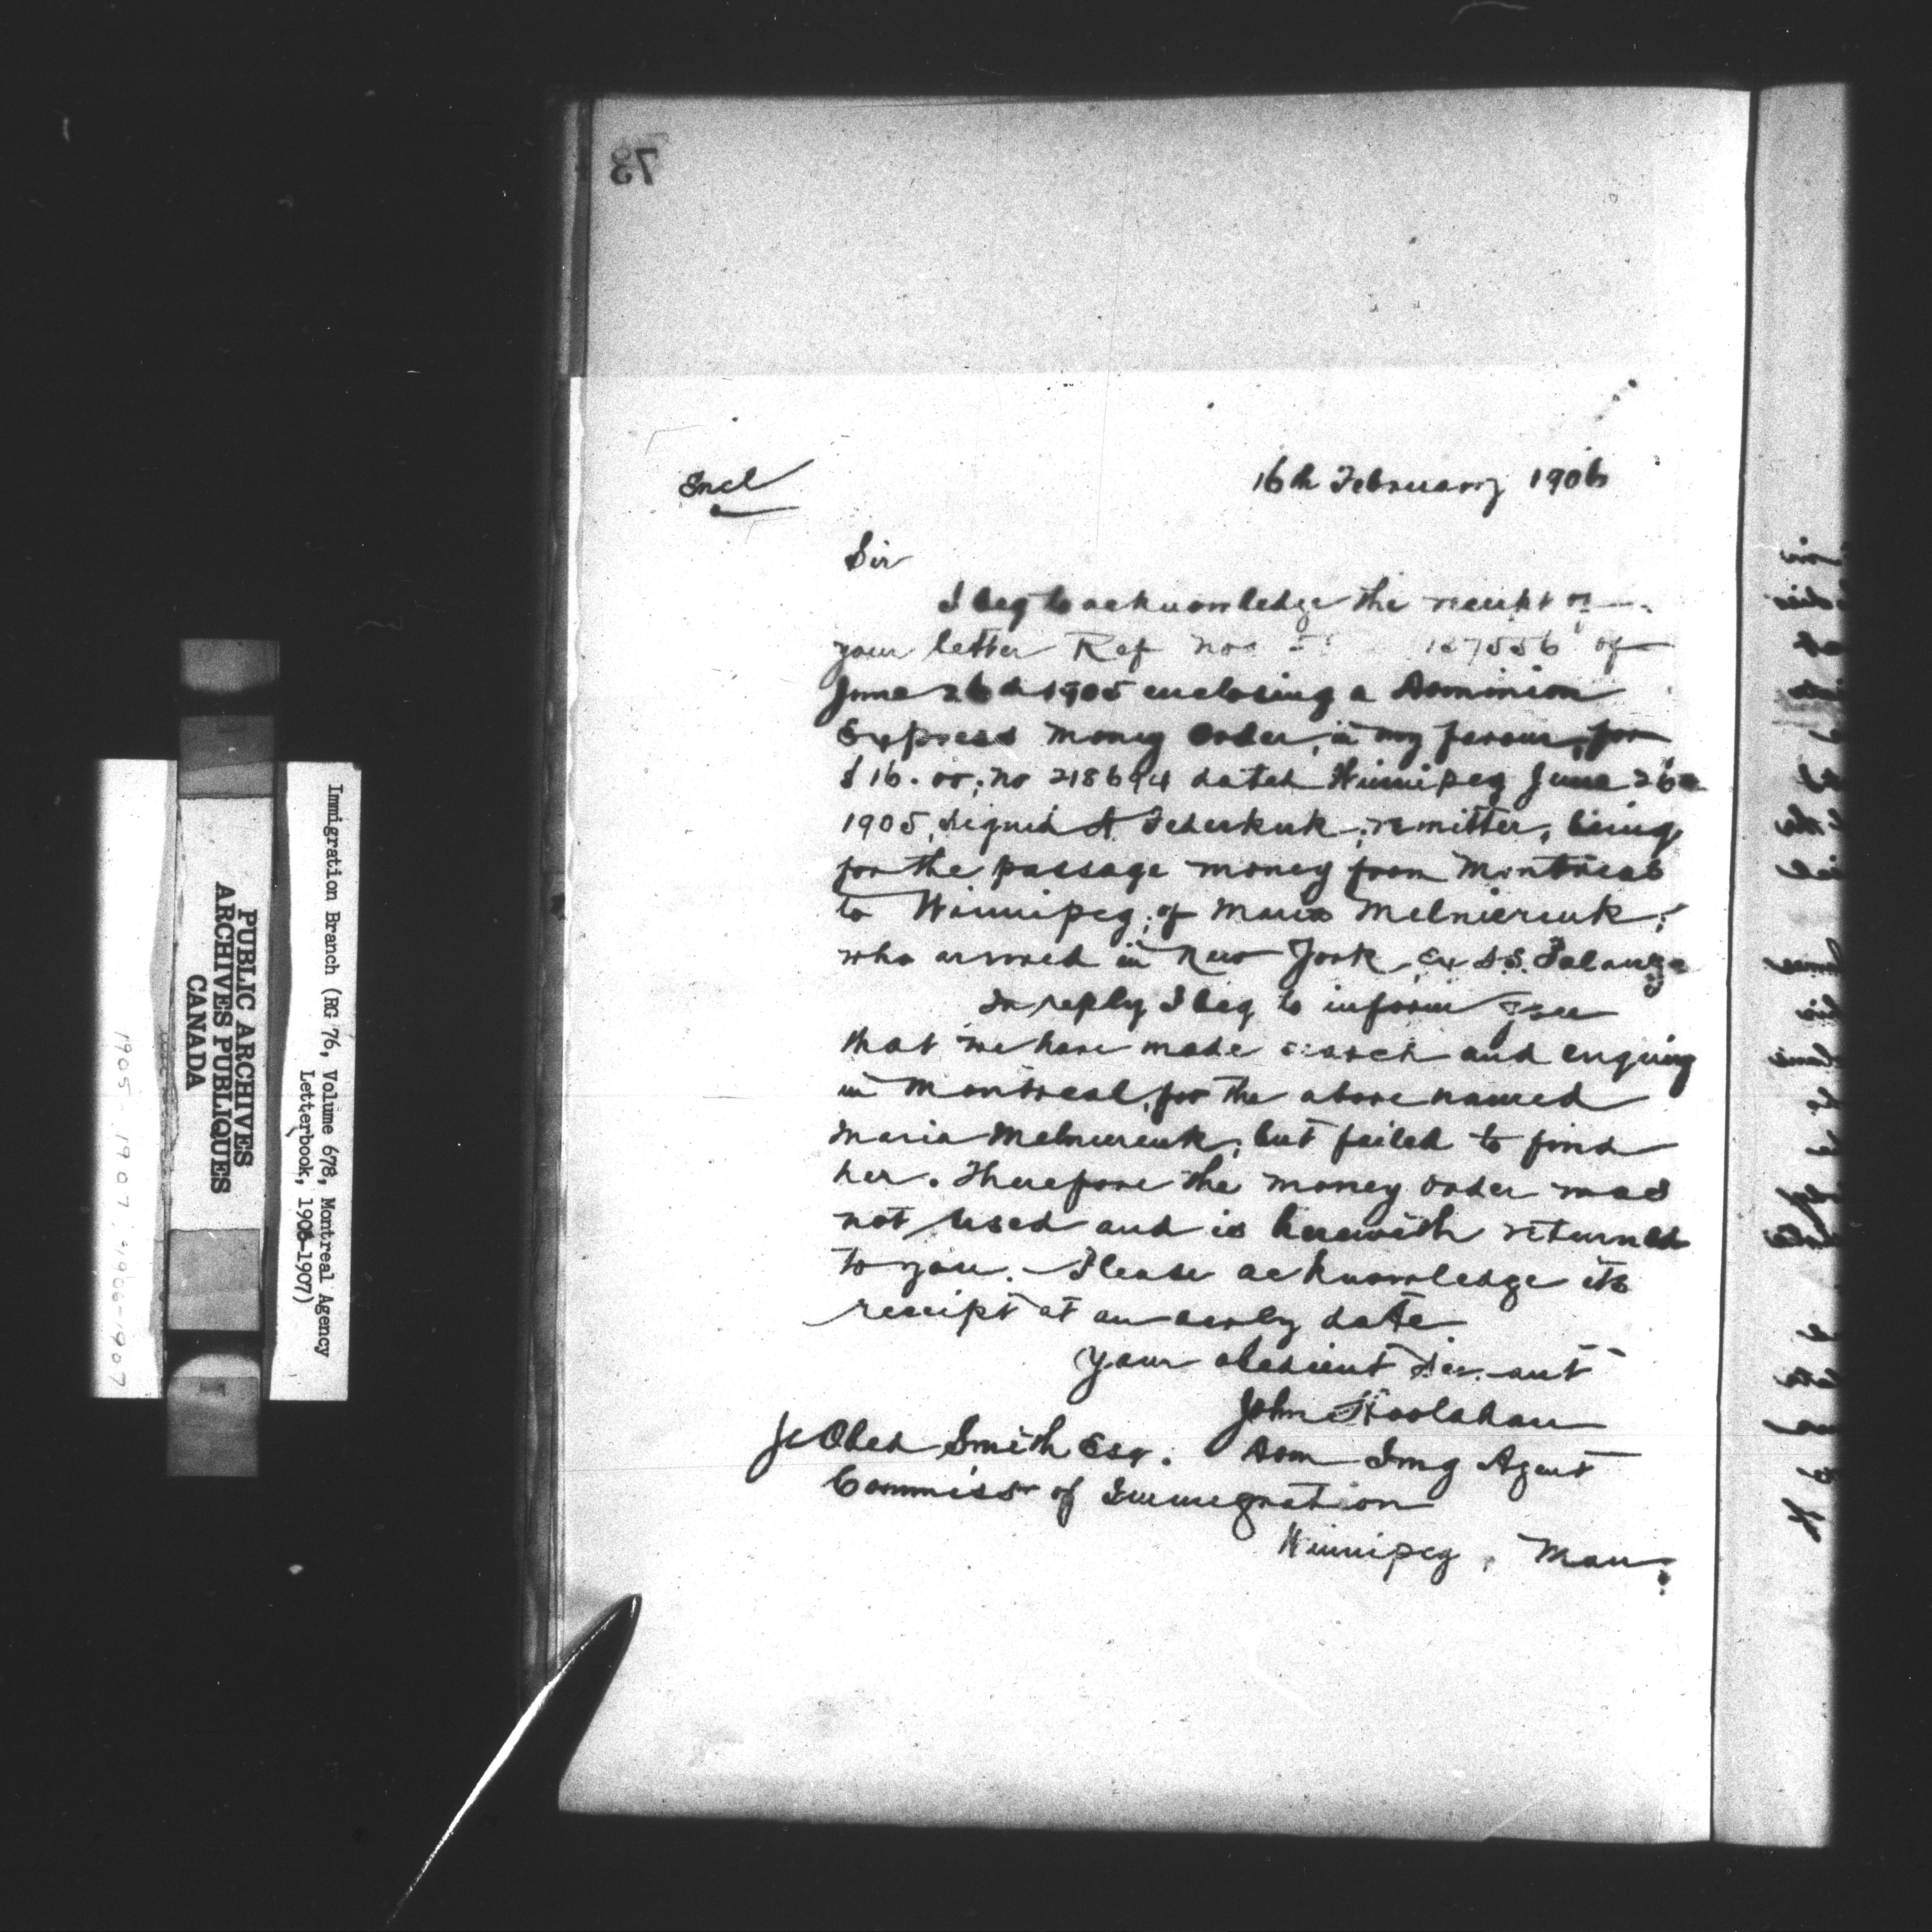 73
Encl
16th February 1906
Sir
I beg to acknowledge the receipt of
your letter Ref No. 127556 of
June 26th 1905 enclosing a Dominion
Express Money Order, in my favour, for
$16.00; no 218694 dated Winnipeg June 26th
1905, signed A. Federkuk, remitter, being
for the passage money from Montreal
to Winnipeg; of Maria Melniereuk;
who arrived in New York Ex S.S.
In reply I beg to inform you
that we have made search and enquiry
in Montreal, for the above named
Maria Melniereuk, but failed to find
her. Therefore the money order was
not used and is herewith returned
to you. Please acknowledge its
receipt at an early date
Your obedient Servant
John Hoolahan
Dom Img Agent
J. Obed Smith Esqr.
Commissr of Immigration
Winnipeg, Man.
Immigration Branch (RG 76, Volume 678, Montreal Agency
Letterbook, 1906-1907)
PUBLIC ARCHIVES
ARCHIVES PUBLIQUES
CANADA
1905-1907, 1906-1907